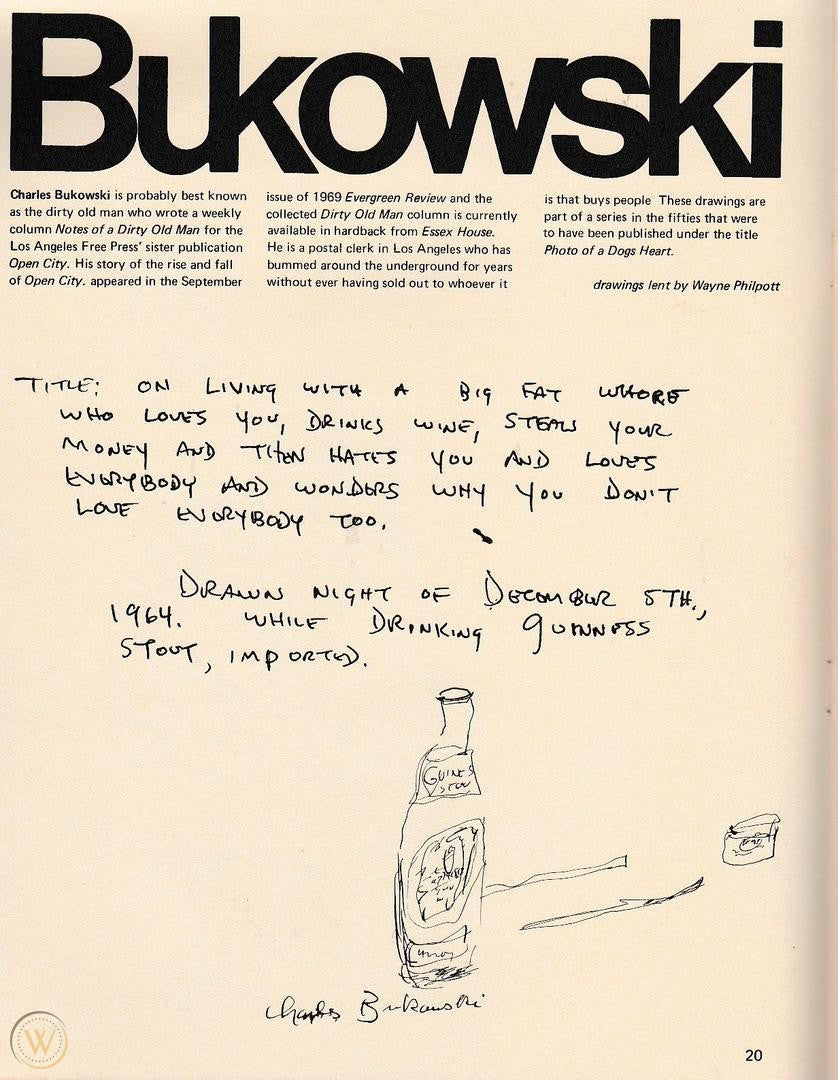 Bukowski
Charles Bukowski is probably best known
as the dirty old man who wrote a weekly
column Notes of a Dirty Old Man for the
Los Angeles Free Press' sister publication
Open City. His story of the rise and fall
of Open City. appeared in the September
issue of 1969 Evergreen Review and the
collected Dirty Old Man column is currently
available in hardback from Essex House.
He is a postal clerk in Los Angeles who has
bummed around the underground for years
without ever having sold out to whoever it
is that buys people These drawings are
part of a series in the fifties that were
to have been published under the title
Photo of a Dogs Heart.
drawings lent by Wayne Philpott
TITLE: ON LIVING WITH A BIG FAT WHORE
WHO LOVES YOU, DRINKS WINE, STEALS YOUR
MONEY AND THEN HATES YOU AND LOVES
EVERYBODY AND WONDERS WHY YOU DON'T
LOVE EVERYBODY TOO.
DRAWN NIGHT OF DECEMBER 5TH.,
1964. WHILE DRINKING GUINNESS
STOUT, IMPORTED.
GUINES
STOU
Charles Bukowski
W
20